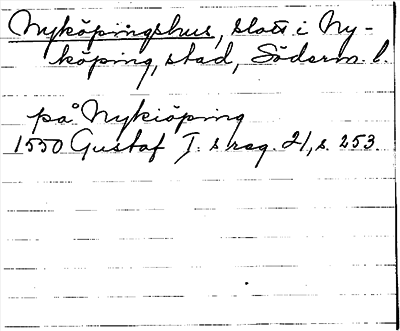 Nyköpingshus, slott i Ny-
köping, stad, Söderm. l.
på Nykiöping
1550 Gustaf I. s reg. 21, s. 253.